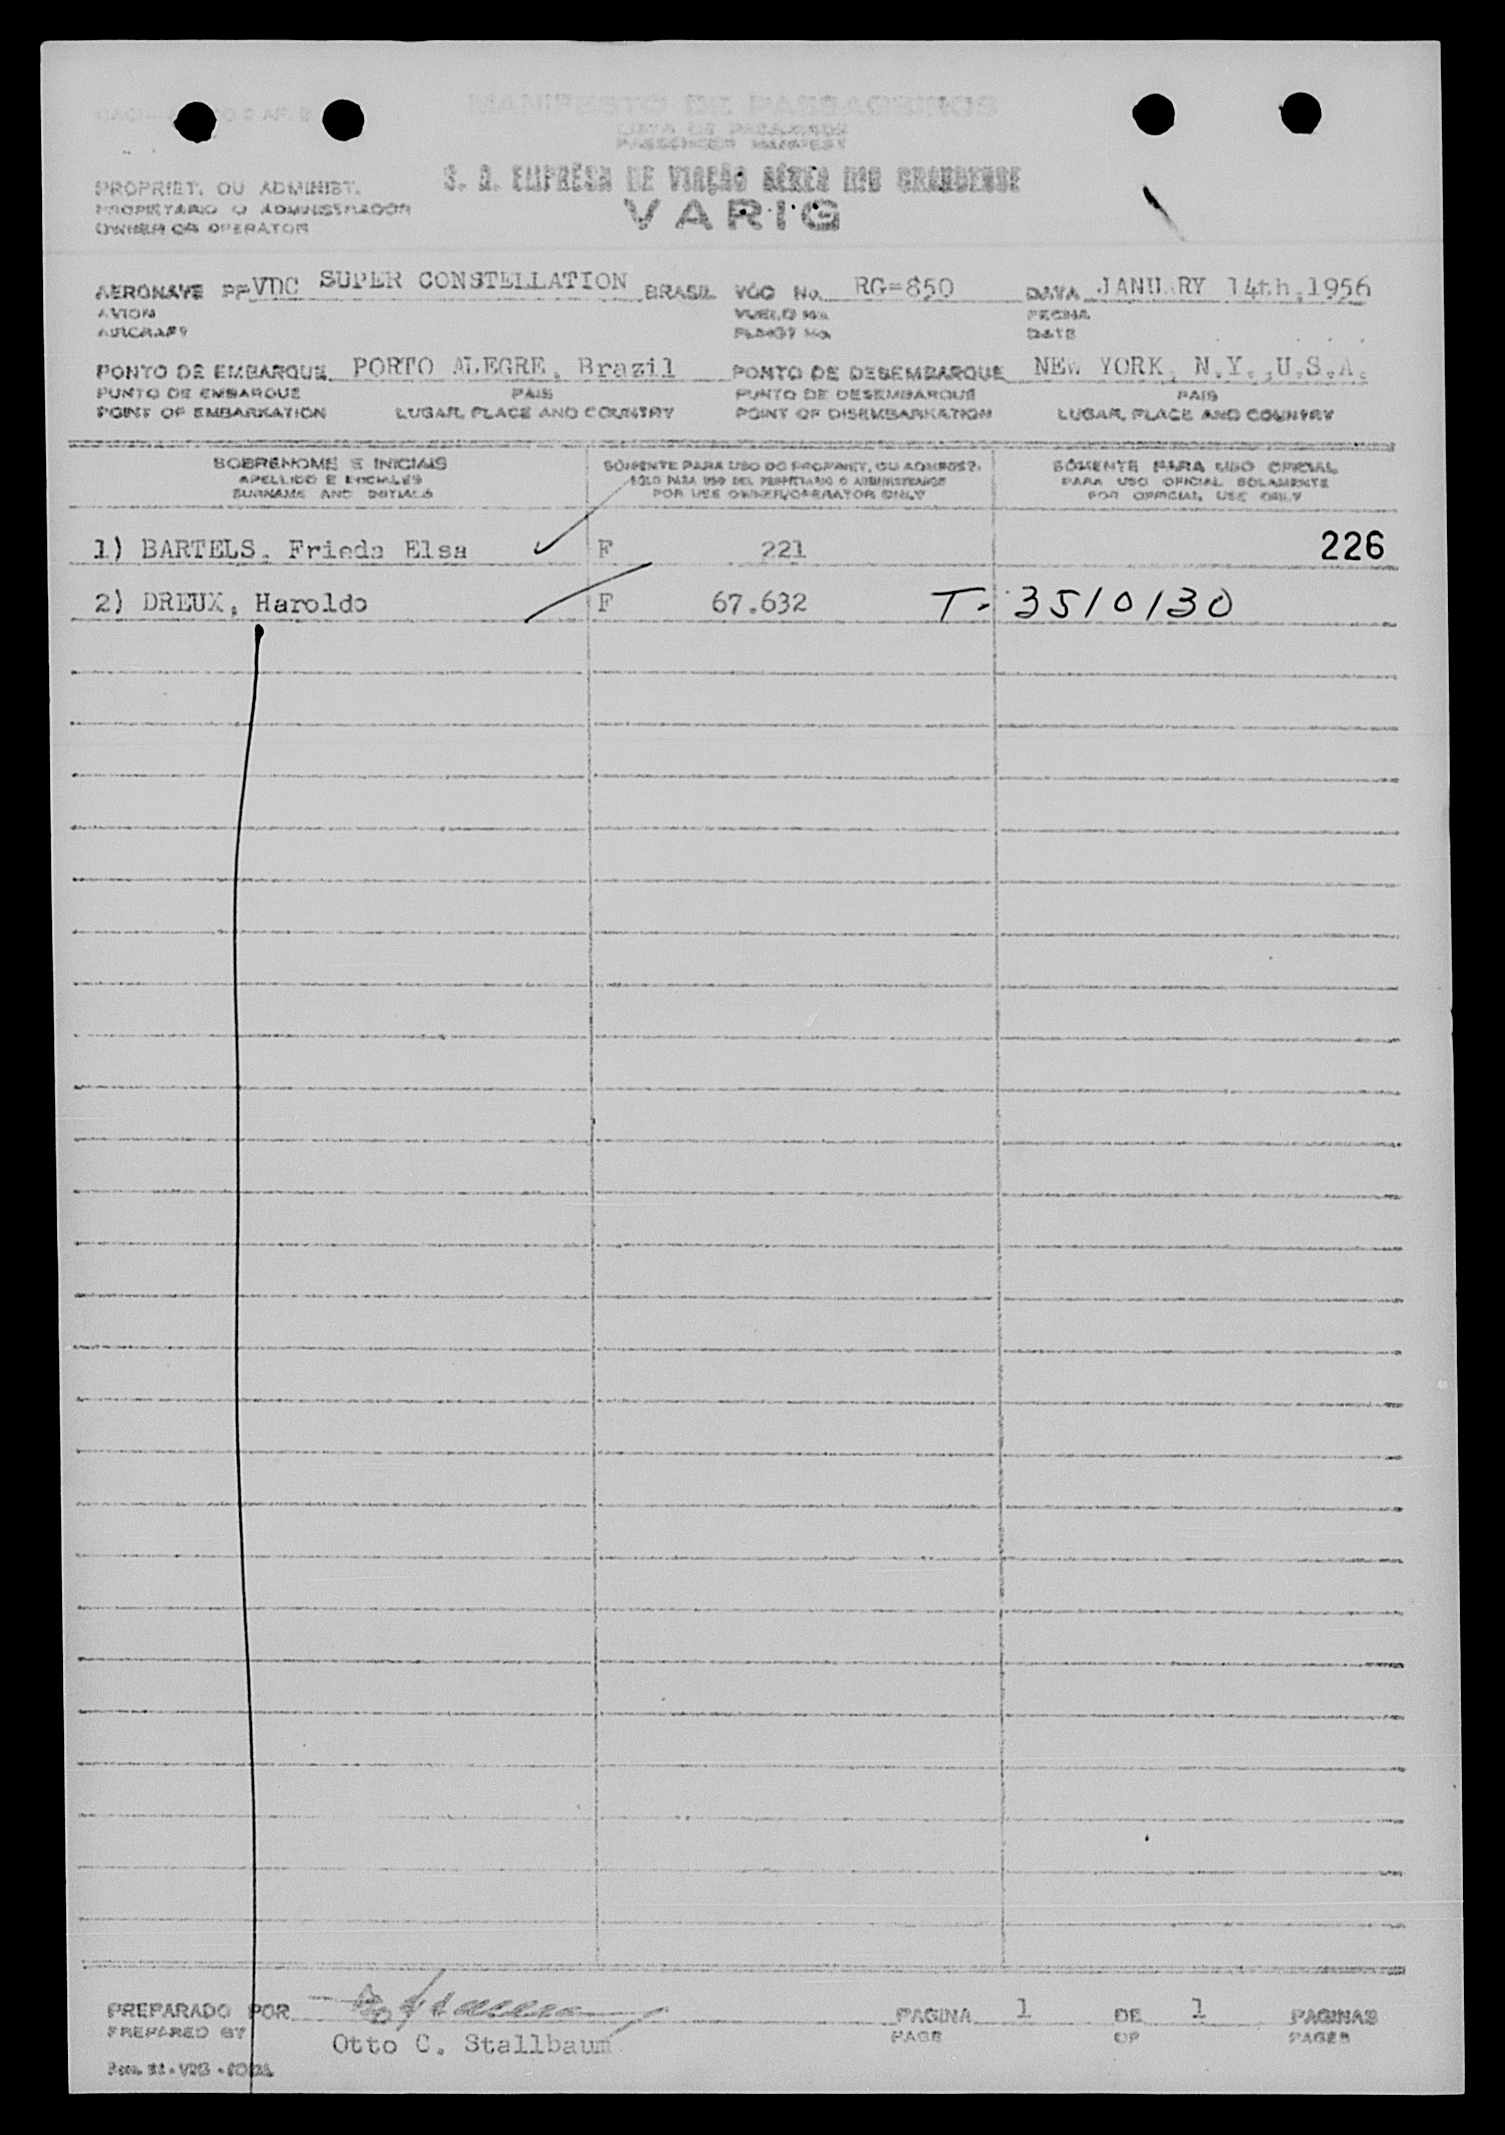 MANIFESTO DE PASSAGEIROS
LISTA DE PASAJEROS
PASSENGER MANIFEST
PROPRIET. OU ADMINIST.
PROPIETARIO O ADMINISTRADOR
OWNER OR OPERATOR
S. A. EMPRÊSA DE VIAÇÃO AÉREA RIO GRANDENSE
VARIG
AERONAVE PP-VDC SUPER CONSTELLATION BRASIL VÔO No. RG-850 DATA JANUARY 14th, 1956
AVION VUELO No. FECHA
AIRCRAFT FLIGHT No. DATE
PONTO DE EMBARQUE PORTO ALEGRE, Brazil PONTO DE DESEMBARQUE NEW YORK, N.Y.,U.S.A.
PUNTO DE EMBARQUE PAIS PUNTO DE DESEMBARQUE PAIS
POINT OF EMBARKATION LUGAR, PLACE AND COUNTRY POINT OF DISEMBARKATION LUGAR, PLACE AND COUNTRY
SOBRENOME E INICIAIS SÒMENTE PARA USO DO PROPRIET. OU ADMINIST. SÒMENTE PARA USO OFICIAL
APELLIDO E INICIALES SOLO PARA USO DEL PROPIETARIO O ADMINISTRADOR PARA USO OFICIAL SOLAMENTE
SURNAME AND INITIALS FOR USE OWNER/OPERATOR ONLY FOR OFFICIAL USE ONLY
1) BARTELS, Frieda Elsa F 221 226
2) DREUX, Haroldo F 67.632 T- 3510130
PREPARADO POR PAGINA 1 DE 1 PAGINAS
PREPARED BY Otto C. Stallbaum PAGE OF PAGES